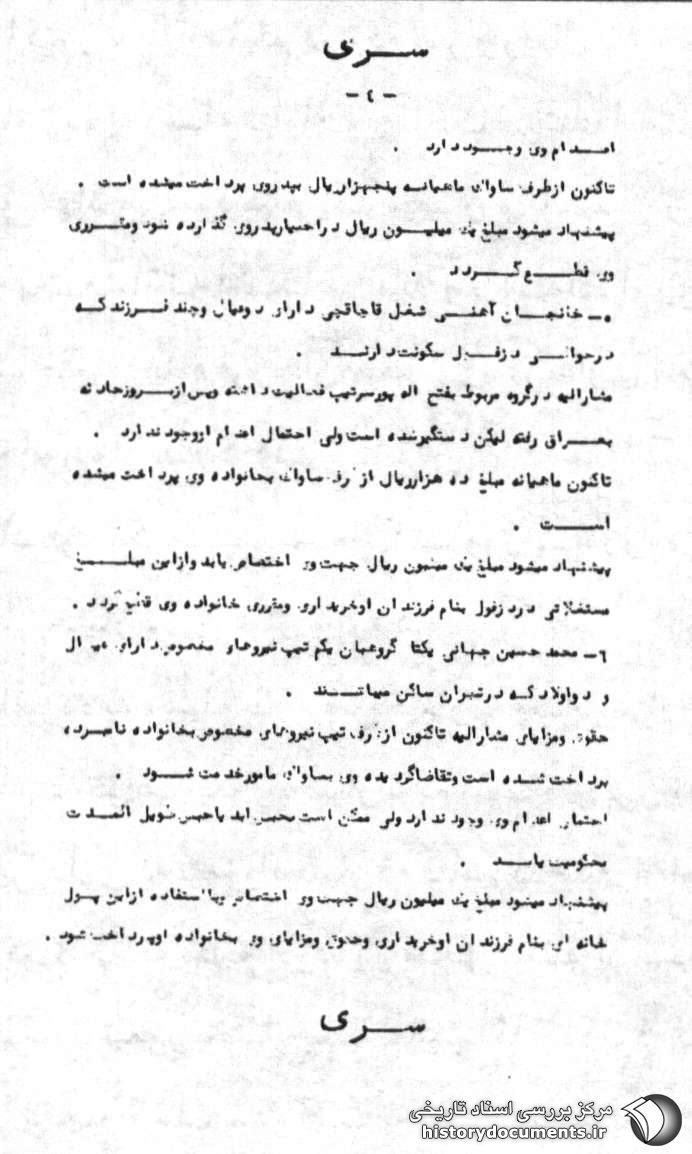 سری
- ٤ -
اعدام وی وجود دارد .
تاکنون از طرف ساواک ماهیانه پنجهزار ریال بپدر وی پرداخت میشده است .
پیشنهاد میشود مبلغ یک میلیون ریال در اختیار پدر وی گذارده شود ومقرری
وی قطع گردد .
٥ - خانجان آهنی شغل قاچاقچی دارای دوعیال وچند فرزند که
درحوالی دزفول سکونت دارند .
مشارالیه درگروه مربوط بفتح اله پورسرتیپ فعالیت داشته وپس از بروز حادثه
بعراق رفته لیکن دستگیرشده است ولی احتمال اعدام اووجود ندارد .
تاکنون ماهیانه مبلغ ده هزارریال از طرف ساواک بخانواده وی پرداخت میشده
است .
پیشنهاد میشود مبلغ یک میلیون ریال جهت وی اختصاص یابد وازاین مبلغ
مستغلاتی در دزفول بنام فرزندان اوخریداری ومقرری خانواده وی قطع گردد .
٦ - محمد حسین جهانی یکتا گروهبان یکم تیپ نیروهای مخصوص دارای عیال
و دواولاد که درتهران ساکن میباشند .
حقوق ومزایای مشارالیه تاکنون ازطرف تیپ نیروهای مخصوص بخانواده نامبرده
پرداخت شده است وتقاضاگردیده وی بساواک مامورخدمت شود .
احتمال اعدام وی وجود ندارد ولی ممکن است بحبس ابد یاحبس طویل المدت
محکومیت یابد .
پیشنهاد میشود مبلغ یک میلیون ریال جهت وی اختصاص وبااستفاده ازاین پول
خانه ای بنام فرزندان اوخریداری وحقوق ومزایای وی بخانواده اوپرداخت شود .
سری
مرکز بررسی اسناد تاریخی
historydocuments.ir